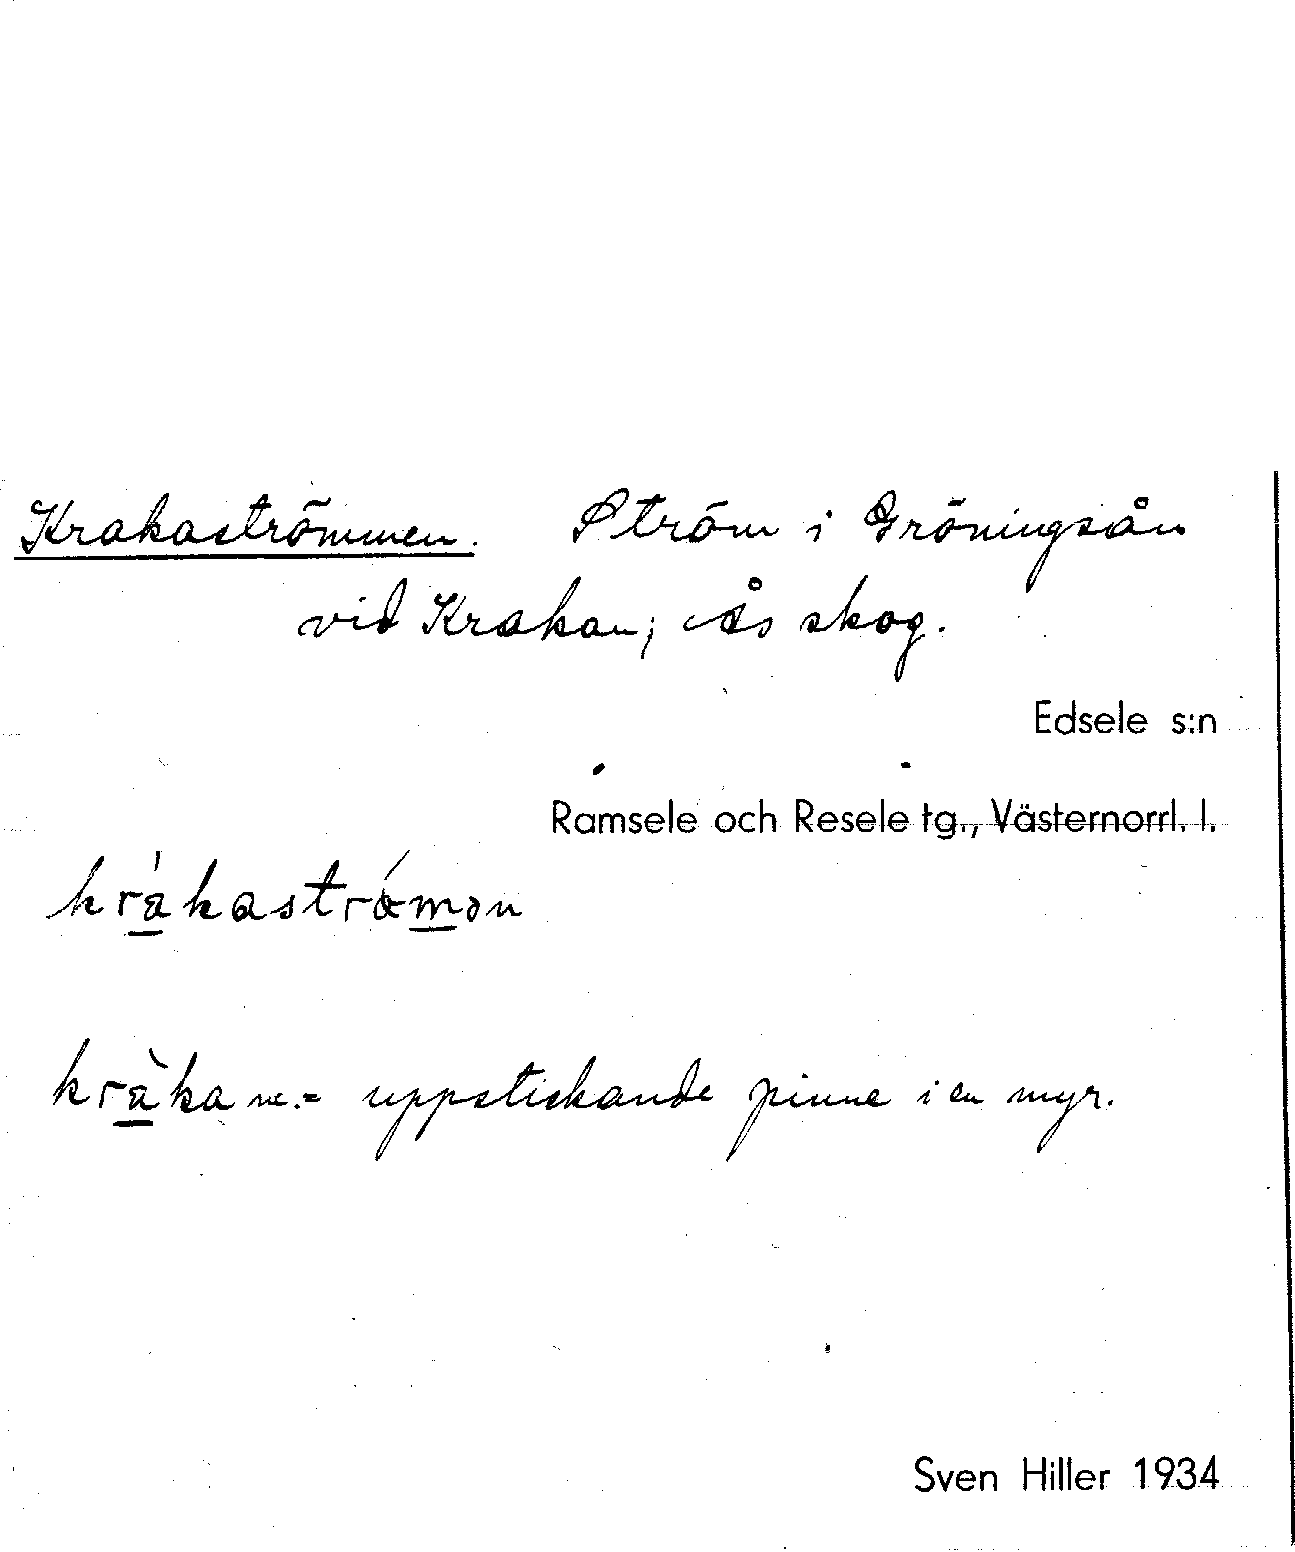 Krakaströmmen. Ström i Gröningsån
vid Krakan; Ås skog.
Edsele s:n
Ramsele och Resele tg., Västernorrl. l.
kràkaströmən
kràka m. = uppstickande pinne i en myr.
Sven Hiller 1934